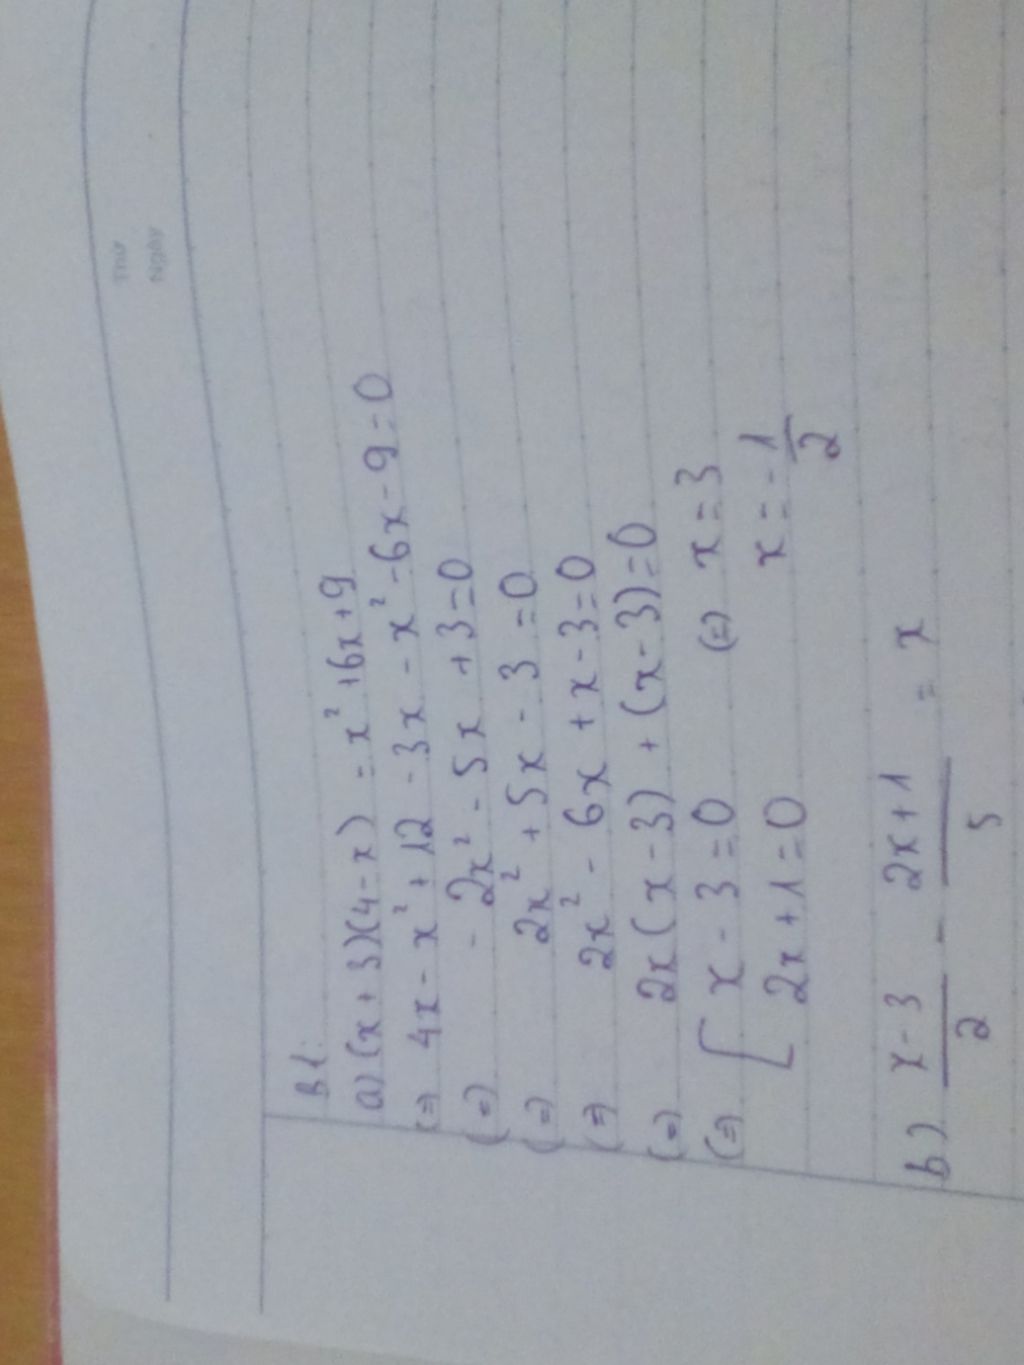 Thứ
Ngày
B1:
a) (x + 3)(4 - x) = x² + 6x + 9
(=) 4x - x² + 12 - 3x - x² - 6x - 9 = 0
(=) - 2x² - 5x + 3 = 0
(=) 2x² + 5x - 3 = 0
(=) 2x² - 6x + x - 3 = 0
(=) 2x(x - 3) + (x - 3) = 0
(=) [ x - 3 = 0 (=) x = 3
2x + 1 = 0 x = - 1/2
b) x - 3/2 - 2x + 1/5 = x